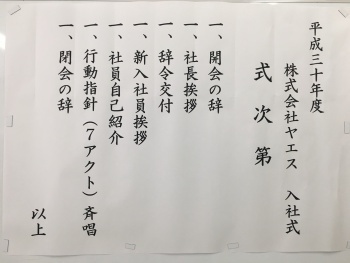 平成三十年度
株式会社ヤエス 入社式
式次第
一、開会の辞
一、社長挨拶
一、辞令交付
一、新入社員挨拶
一、社員自己紹介
一、行動指針（7アクト）斉唱
一、閉会の辞
以上